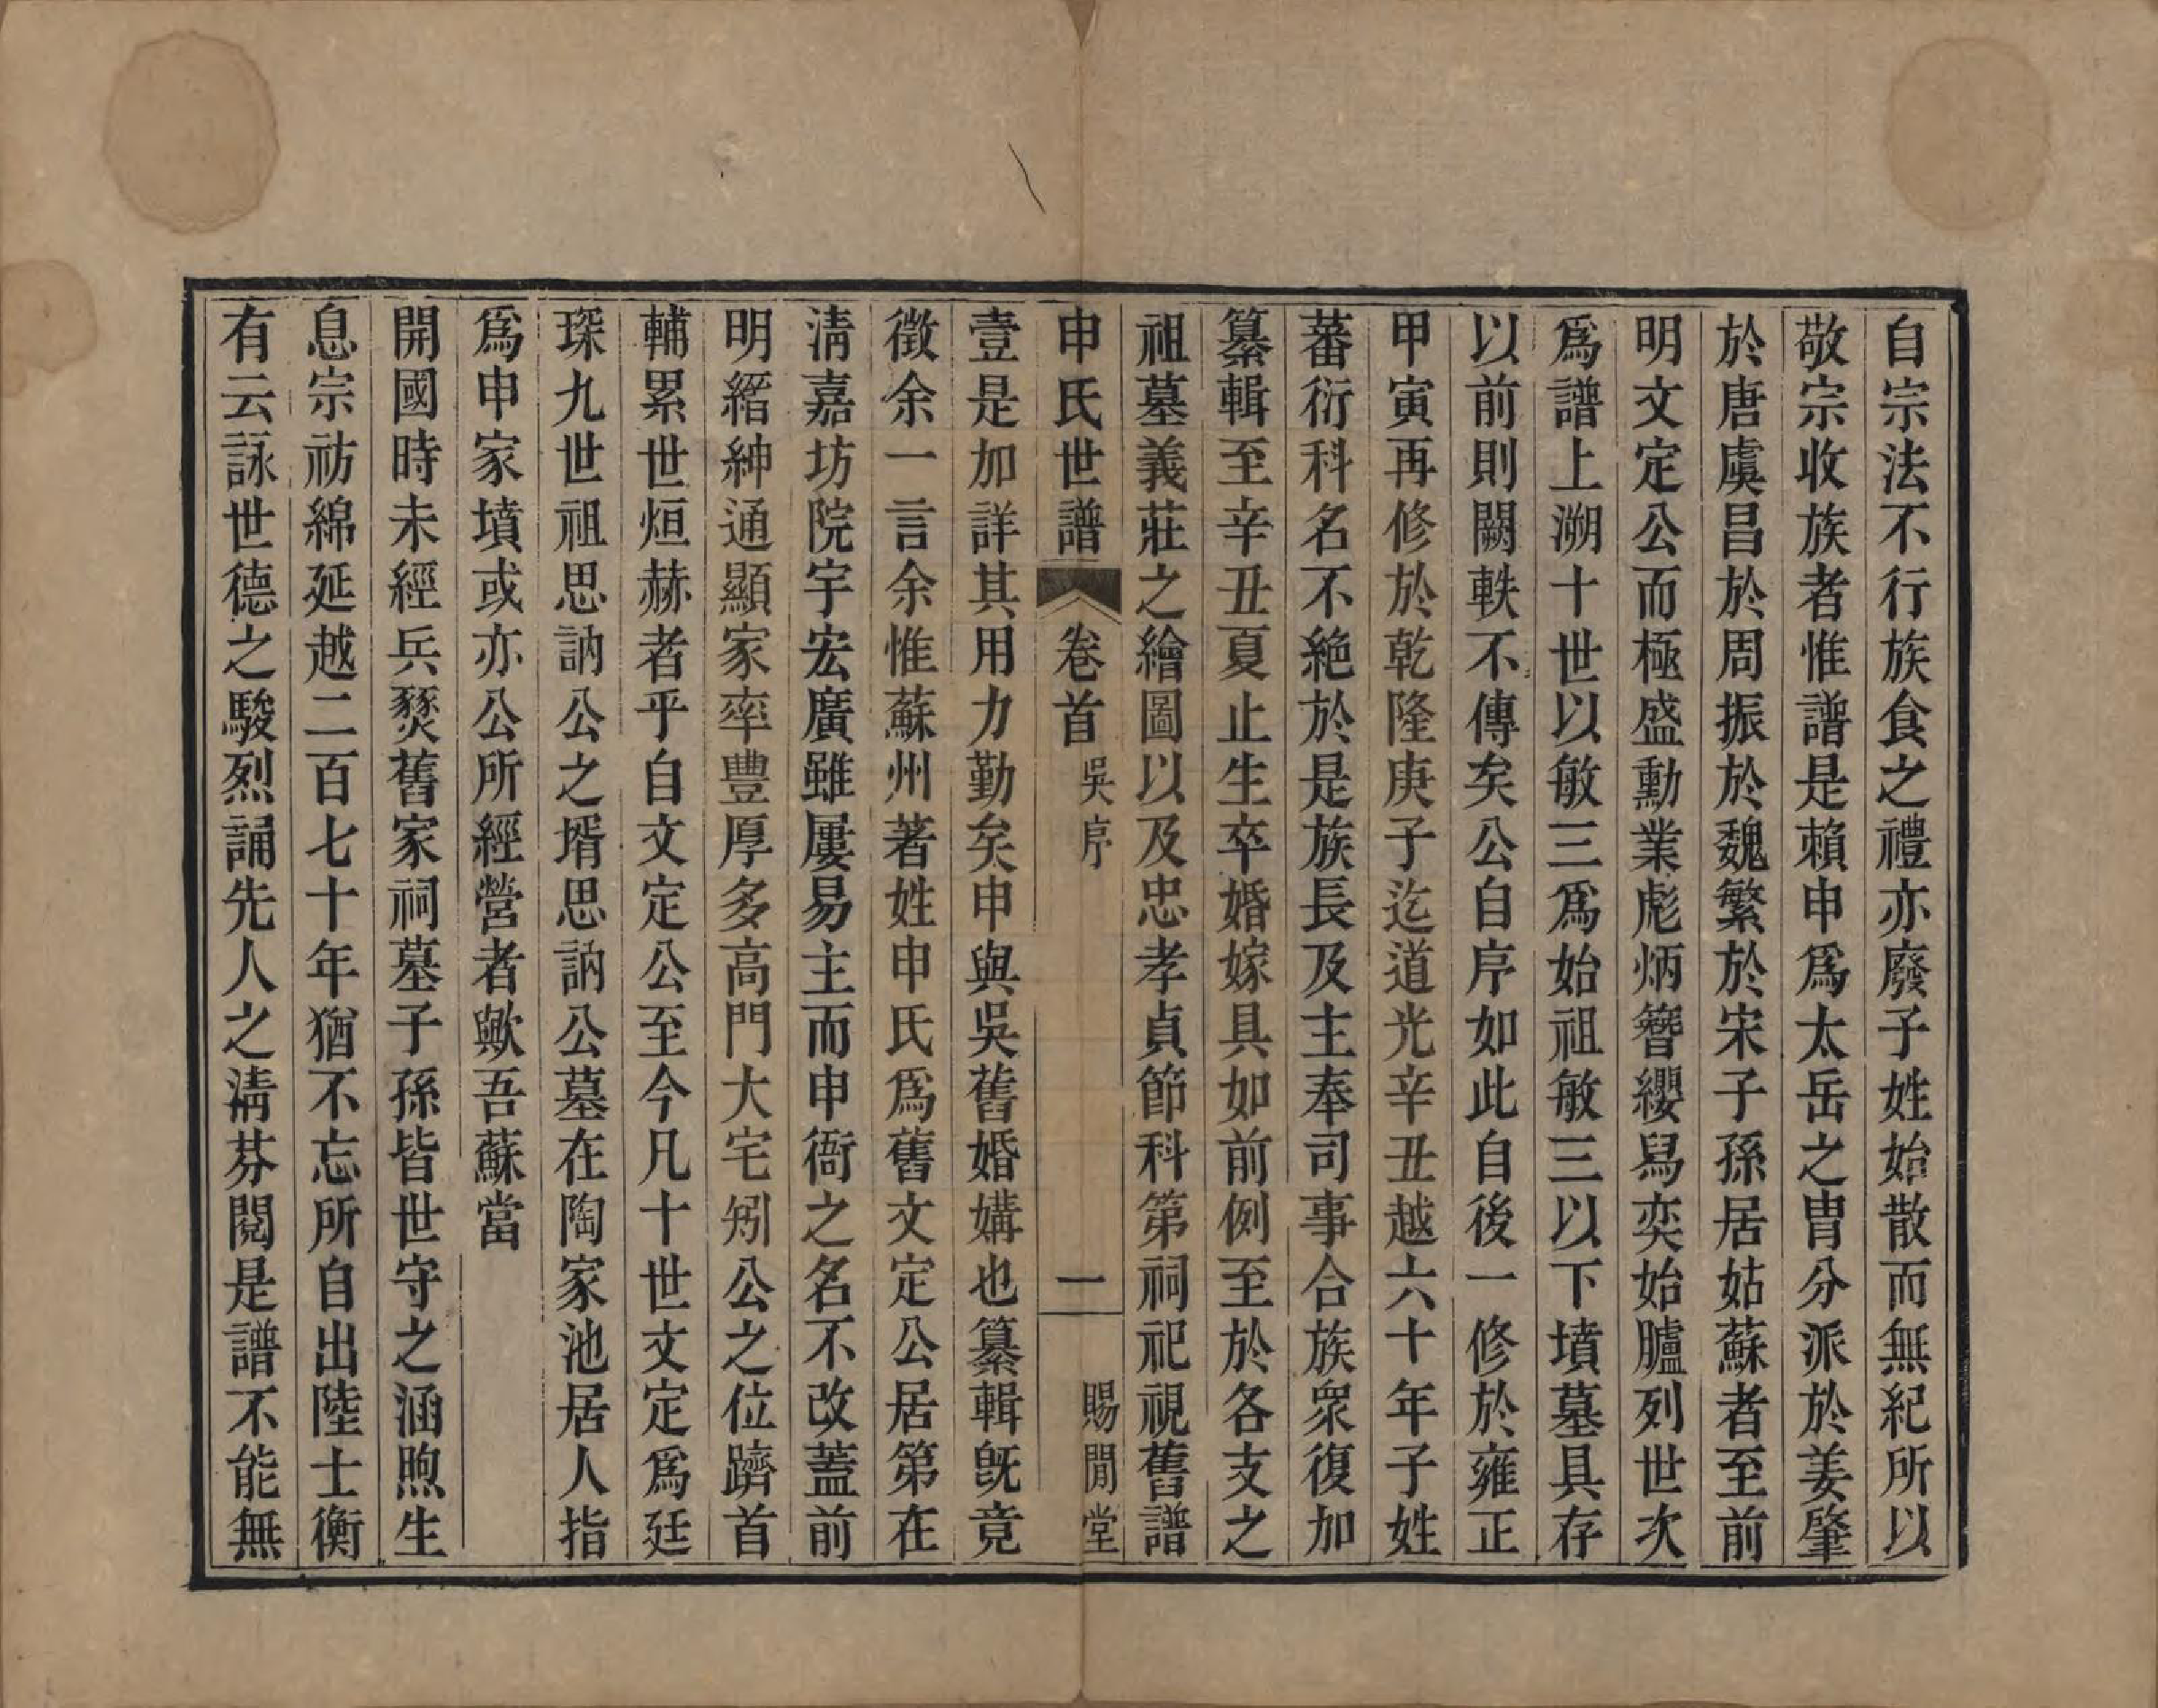 自宗法不行族食之禮亦廢子姓始散而無紀所以
敬宗收族者惟譜是賴申爲太岳之胄分派於姜肇
於唐虞昌於周振於魏繁於宋子孫居姑蘇者至前
明文定公而極盛勳業彪炳簪纓舄奕始臚列世次
爲譜上溯十世以敏三爲始祖敏三以下墳墓具存
以前則闕軼不傳矣公自序如此自後一修於雍正
甲寅再修於乾隆庚子迄道光辛丑越六十年子姓
蕃衍科名不絶於是族長及主奉司事合族衆復加
纂輯至辛丑夏止生卒婚嫁具如前例至於各支之
祖墓義莊之繪圖以及忠孝貞節科第祠祀視舊譜
申氏世譜 卷首 吳序 一 賜閒堂
壹是加詳其用力勤矣申與吳舊婚媾也纂輯既竟
徵余一言余惟蘇州著姓申氏爲舊文定公居第在
清嘉坊院宇宏廣雖屢易主而申衙之名不改蓋前
明縉紳通顯家率豐厚多高門大宅矧公之位躋首
輔累世烜赫者乎自文定公至今凡十世文定爲廷
琛九世祖思訥公之壻思訥公墓在陶家池居人指
爲申家墳或亦公所經營者歟吾蘇當
開國時未經兵燹舊家祠墓子孫皆世守之涵煦生
息宗祊綿延越二百七十年猶不忘所自出陸士衡
有云詠世德之駿烈誦先人之淸芬閱是譜不能無